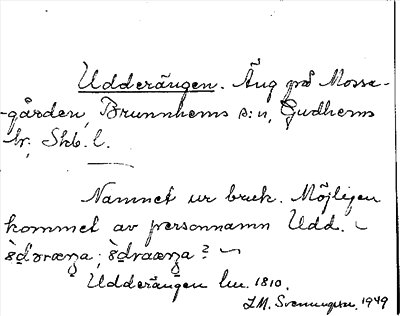 Udderängen. Äng på Mossa-
-gården, Brunnhems s:n, Gudhems
hr, Skb. l.
Namnet ur bruk. Möjligen
kommet av personnamn Udd.
Udderängen lm. 1810.
J.M. Svenningsen. 1949